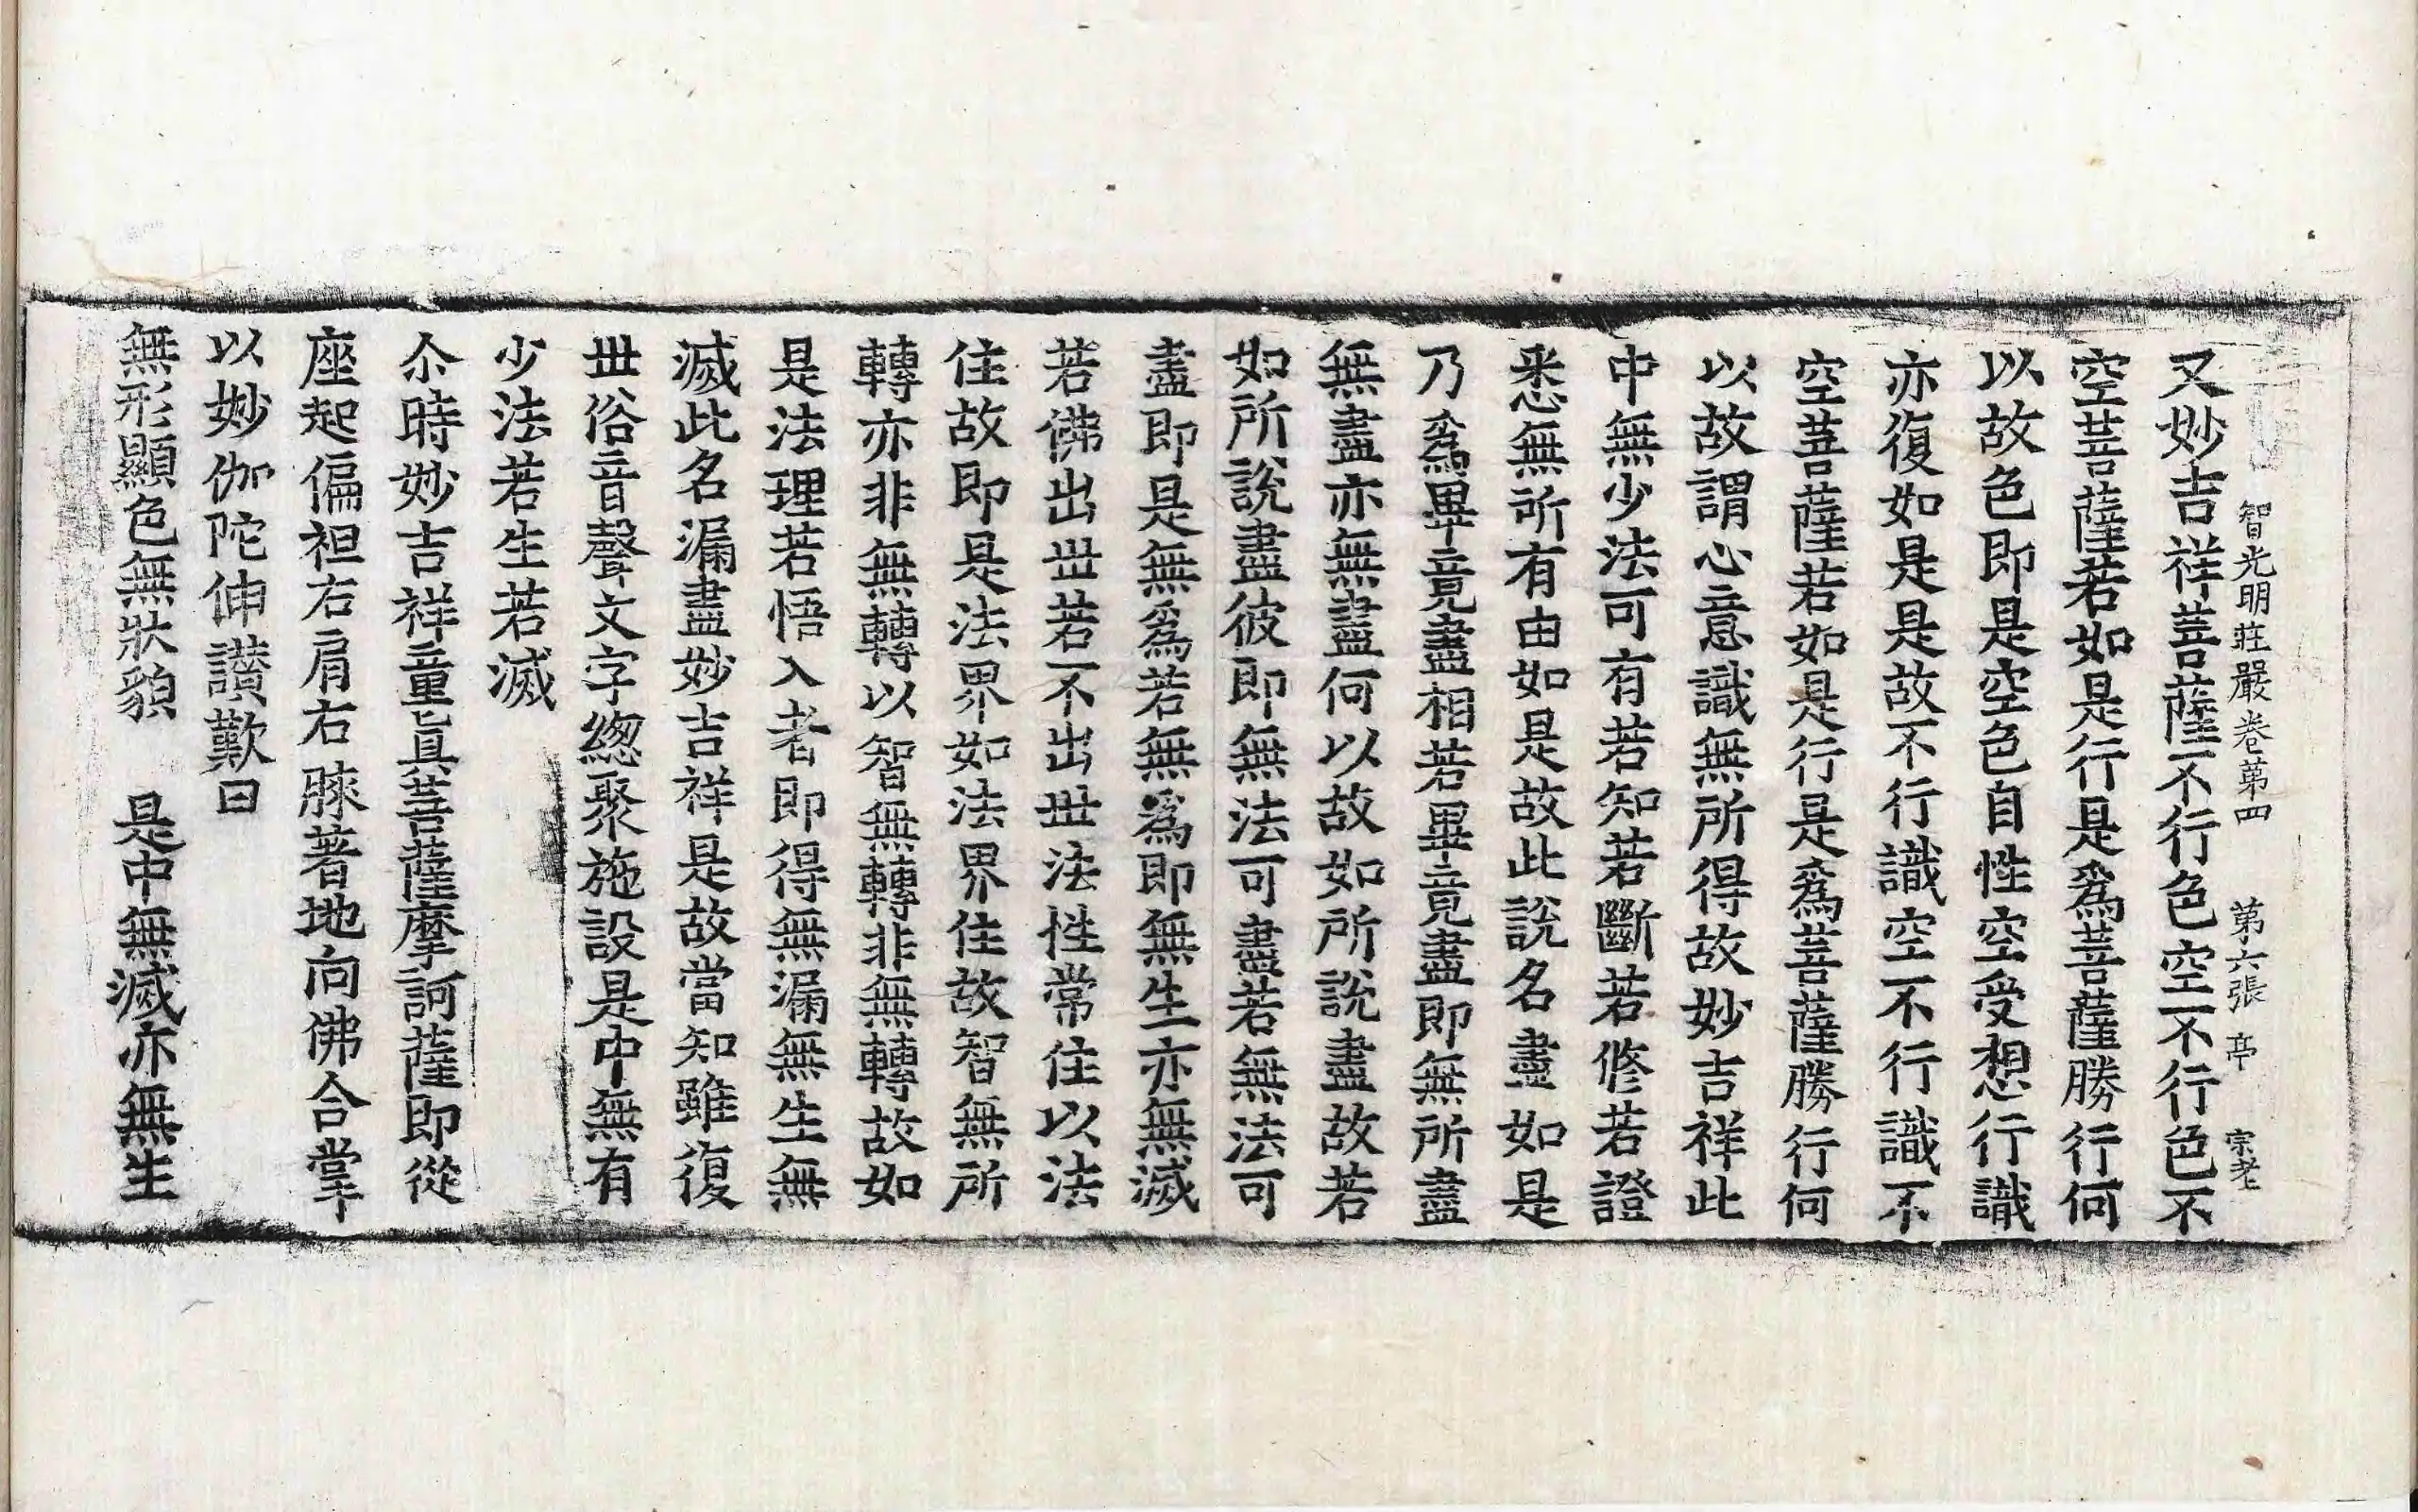 智光明莊嚴卷第四　第六張　亭　宗老
又妙吉祥菩薩不行色空不行色不
空菩薩若如是行是爲菩薩勝行何
以故色即是空色自性空受想行識
亦復如是是故不行識空不行識不
空菩薩若如是行是爲菩薩勝行何
以故謂心意識無所得故妙吉祥此
中無少法可有若知若斷若修若證
悉無所有由如是故此說名盡如是
乃爲畢竟盡相若畢竟盡即無所盡
無盡亦無盡何以故如所說盡故若
如所說盡彼即無法可盡若無法可
盡即是無爲若無爲即無生亦無滅
若佛出丗若不出丗法性常住以法
住故即是法界如法界住故智無所
轉亦非無轉以智無轉非無轉故如
是法理若悟入者即得無漏無生無
滅此名漏盡妙吉祥是故當知雖復
丗俗音聲文字緫聚施設是中無有
少法若生若滅
尒時妙吉祥童眞菩薩摩訶薩即從
座起偏袒右肩右膝著地向佛合掌
以妙伽陀伸讃歎曰
無形顯色無狀貌　是中無滅亦無生